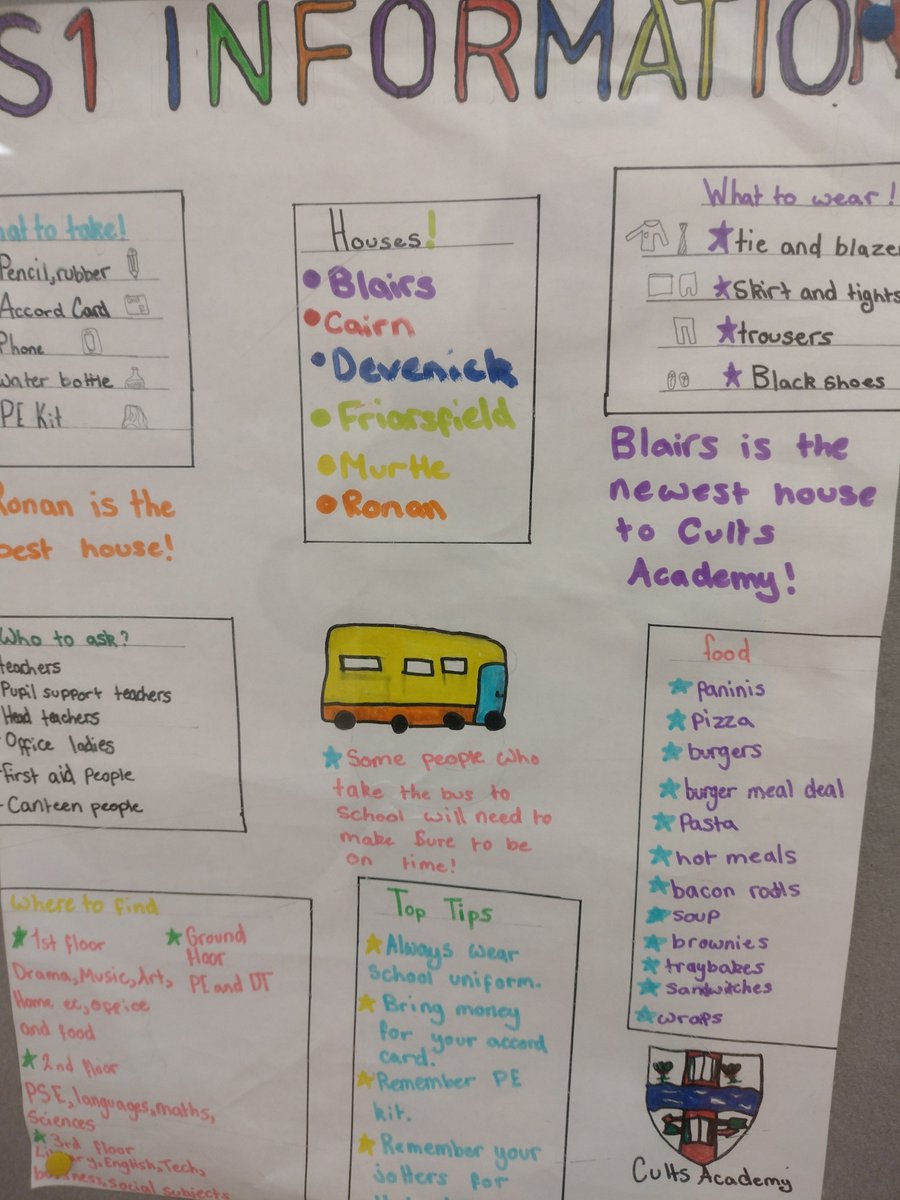 S1 INFORMATION
What to take!
Pencil, rubber
Accord Card
Phone
water bottle
PE Kit
Ronan is the
best house!
Houses!
Blairs
Cairn
Devenick
Friarsfield
Murtle
Ronan
What to wear!
tie and blazer
Skirt and tights
trousers
Black shoes
Blairs is the
newest house
to Cults
Academy!
Who to ask?
teachers
Pupil support teachers
Head teachers
- Office ladies
- First aid People
- Canteen people
Some people who
take the bus to
school will need to
make sure to be
on time!
food
Paninis
Pizza
burgers
burger meal deal
Pasta
hot meals
bacon rolls
soup
brownies
traybakes
sandwitches
wraps
Where to find
1st floor
Drama, Music, Art,
Home ec, office
and food
Ground
floor
PE and DT
2nd floor
PSE, languages, maths,
Sciences
3rd floor
Library, English, Tech,
business, social subjects
Top Tips
Always wear
school uniform.
Bring money
for your accord
card.
Remember PE
kit.
Remember your
jotters for
Cults Academy